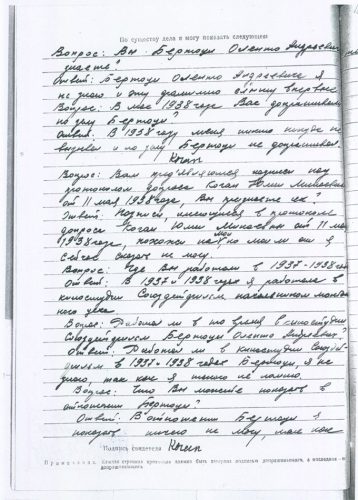 По существу дела я могу показать следующее:
Вопрос: Вы Бертоди Оленто Андреевича
знаете?
Ответ: Бертоди Оленто Андреевича я
не знаю и эту фамилию слышу впервые.
Вопрос: В мае 1938 года Вас допрашивали
по делу Бертоди?
Ответ: В 1938 году меня никто никуда не
вызывал и по делу Бертоди не допрашивал.
Вопрос: Вам предъявляются подписи под
протоколом допроса Коган Юлии Михеевны
от 11 мая 1938 года, Вы признаете их?
Ответ: Подписи, имеющиеся в протоколе
допроса Коган Юлии Михеевны от 11 мая
1938 года, похожи на мои, но мои ли они я
сейчас сказать не могу.
Вопрос: Где Вы работали в 1937-1938 годах
Ответ: В 1937 и 1938 годах я работала в
киностудии Союздетфильм начальником
ного цеха.
Вопрос: Работал ли в то время в киностудии
Союздетфильм Бертоди Оленто Андреевич?
Ответ: Работал ли в киностудии Союздет-
фильм в 1937-1938 годах Бертоди, я не
знаю, так как я этого не помню.
Вопрос: Что Вы можете показать в
отношении Бертоди?
Ответ: В отношении Бертоди я
показать ничего не могу, так как
Подпись свидетеля
Примечание. Каждая страница протокола должна быть подписана допрашиваемым, а последняя и
допрашивающим